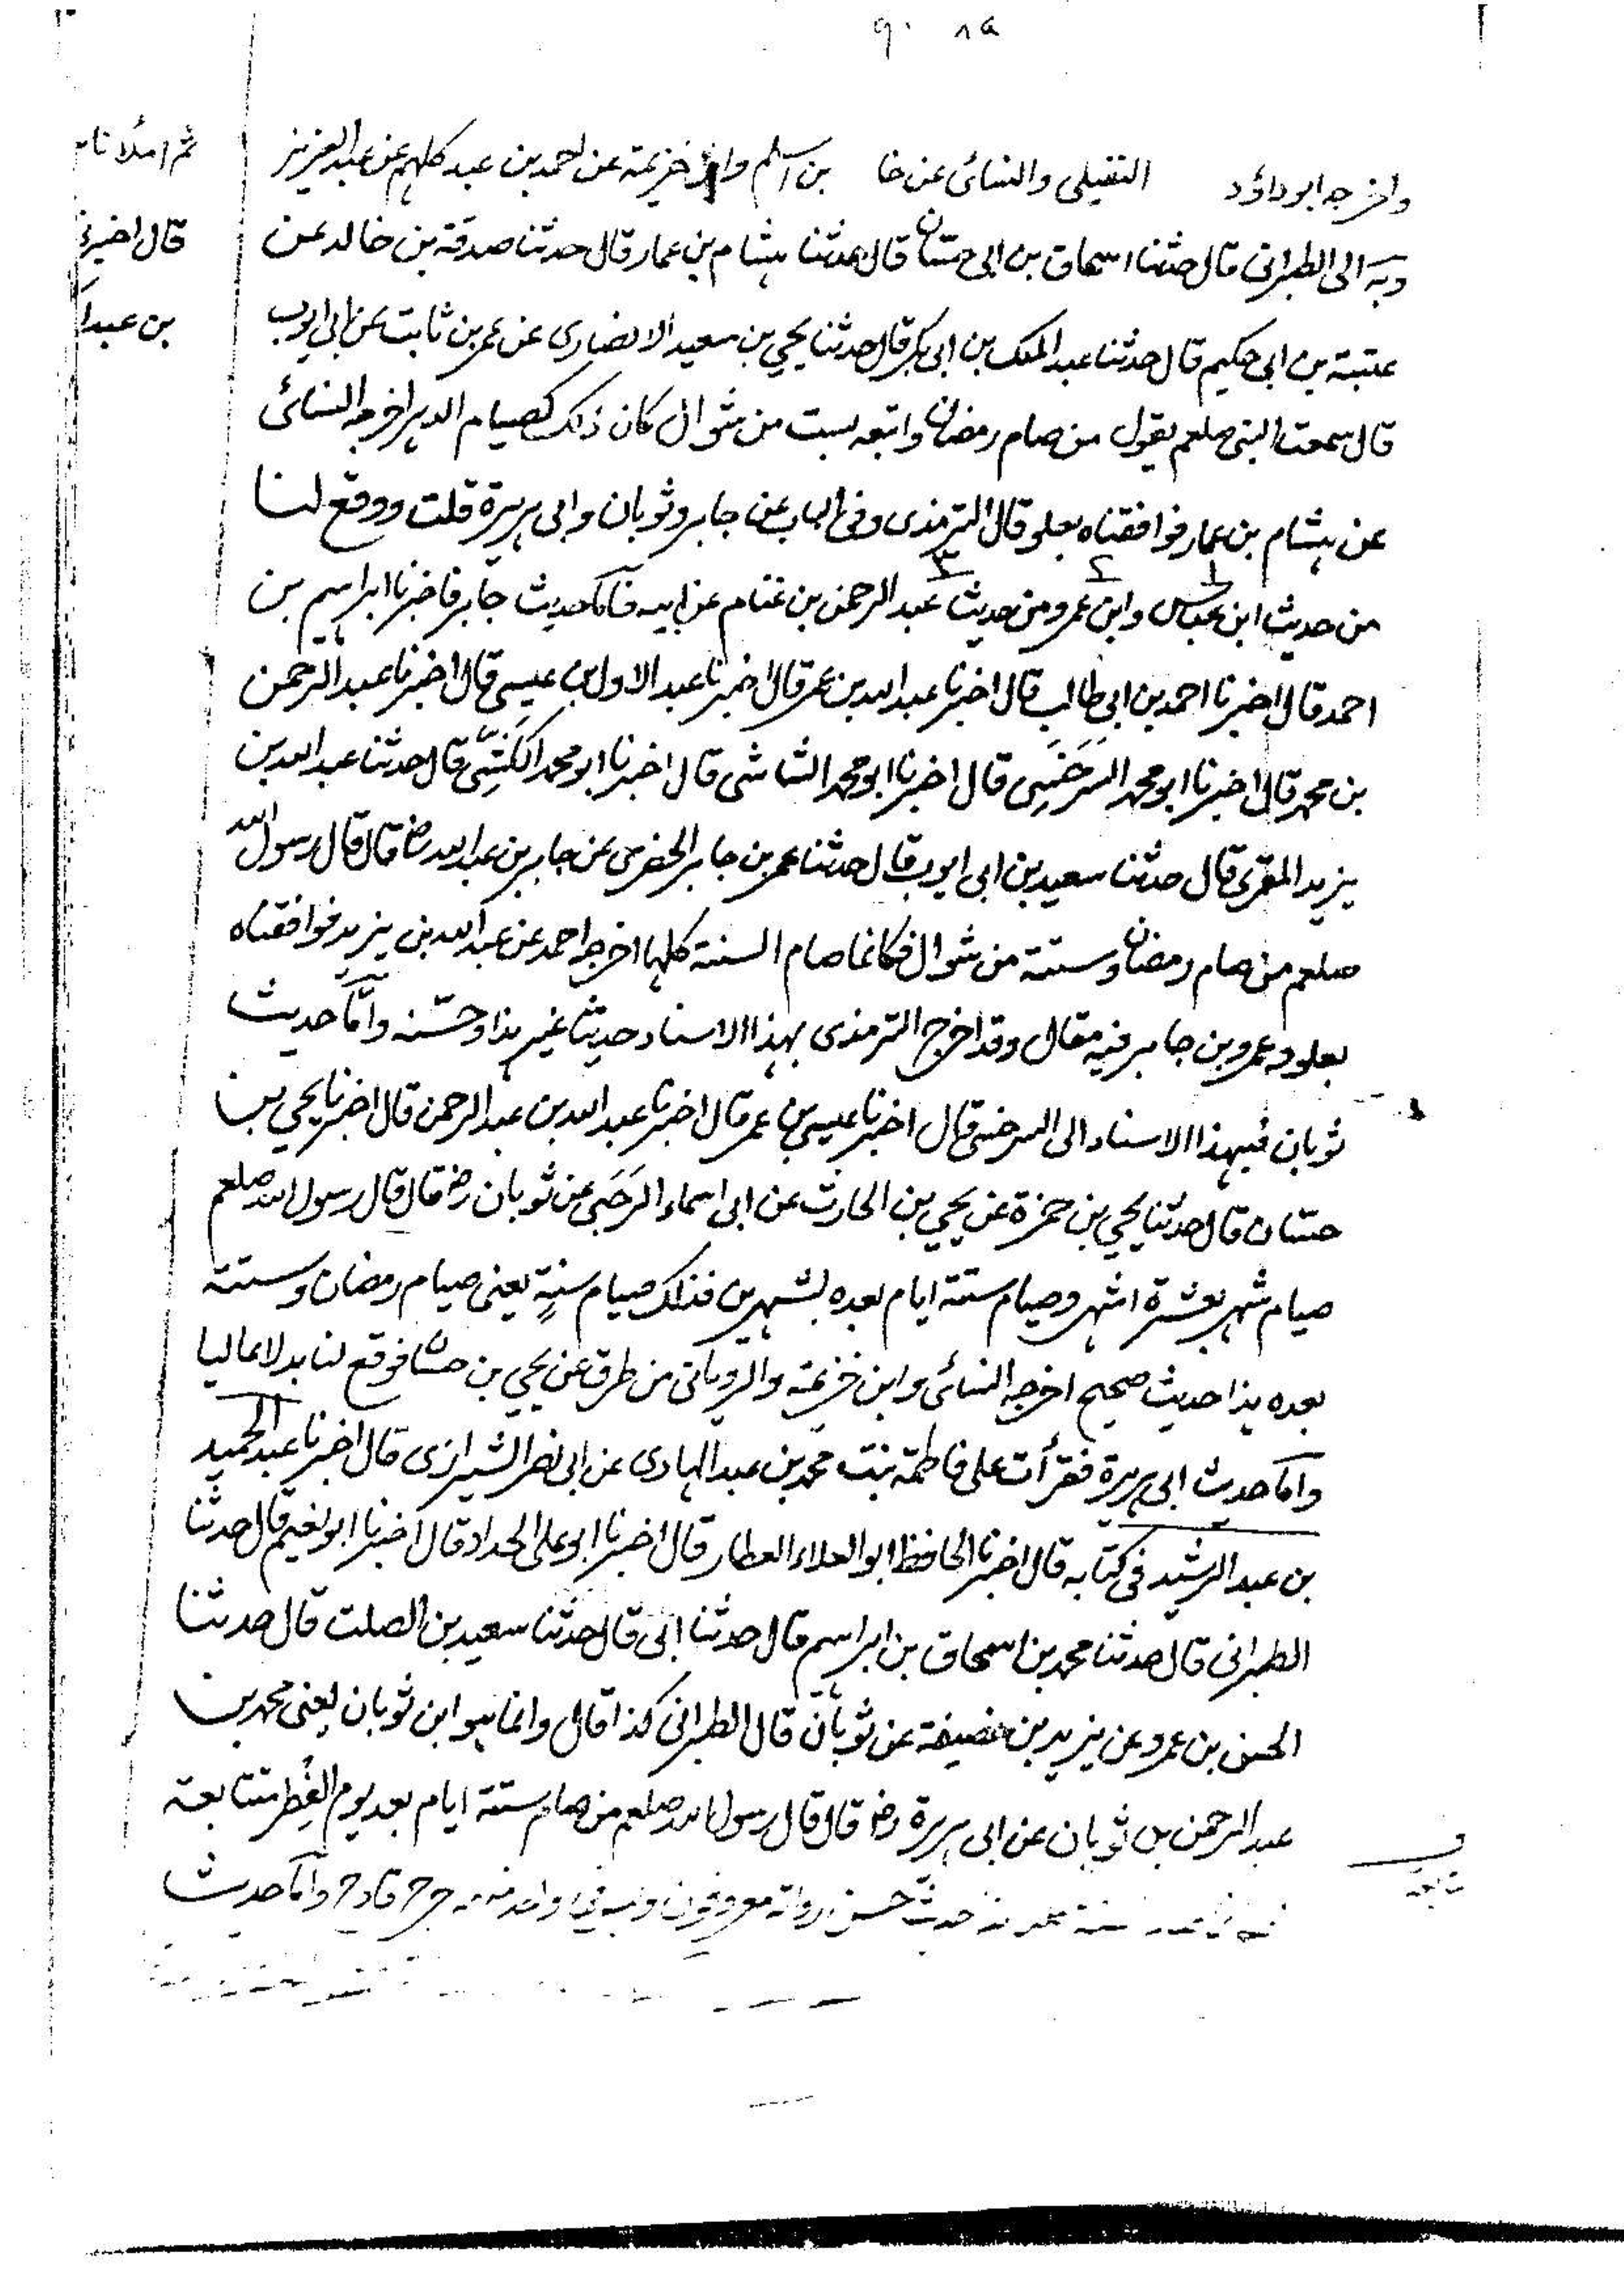 ٩٠ ٨٩
واخرجه ابو داؤد النفيلى والنسائى عن خا بن اسلم وابن خزيمة عن احمد بن عبد كلهم عن عبد العزيز
وبه الى الطبرانى قال حدثنا اسحاق بن ابى حسان قال حدثنا هشام بن عمار قال حدثنا صدقة بن خالد عن
عتبة بن ابى حكيم قال حدثنا عبد الملك بن ابى بكر قال حدثنا يحيى بن سعيد الانصارى عن عمر بن ثابت عن ابى ايوب
قال سمعت النبى صلعم يقول من صام رمضان واتبعه بست من شوال كان ذلك كصيام الدهر اخرجه النسائى
عن هشام بن عمار فوافقناه بعلو قال الترمذى وفى الباب عن جابر وثوبان وابى هريرة قلت ووقع لنا
من حديث ابن عباس وابن عمرو من حديث عبد الرحمن بن غنام عن ابيه فاما حديث جابر فاخبرنا ابراهيم بن
احمد قال اخبرنا احمد بن ابى طالب قال اخبرنا عبد الله بن عمر قال اخبرنا عبد الاول بن عيسى قال اخبرنا عبد الرحمن
بن محمد قال اخبرنا ابو محمد السَرَخسِى قال اخبرنا ابو محمد الشاشى قال اخبرنا ابو محمد الكَشِّى قال حدثنا عبد الله بن
يزيد المقرى قال حدثنا سعيد بن ابى ايوب قال حدثنا عمر بن جابر الحضرمى عن جابر بن عبد الله رض قال قال رسول الله
صلعم من صام رمضان وستة من شوال فكانما صام السنة كلها اخرجه احمد عن عبد الله بن يزيد فوافقناه
بعلو وعمرو بن جابر فيه مقال وقد اخرج الترمذى بهذا الاسناد حديثا غير هذا وحسّنه وامّا حديث
ثوبان فبهذا الاسناد الى السرخسى قال اخبرنا عيسى بن عمر قال اخبرنا عبد الله بن عبد الرحمن قال اخبرنا يحيى بن
حسّان قال حدثنا يحيى بن حمزة عن يحيى بن الحارث عن ابى اسماء الرَحَبى عن ثوبان رض قال قال رسول الله صلعم
صيام شهر بعشرة اشهر وصيام ستة ايام بعده بشهرين فذلك صيام سنةٍ يعنى صيام رمضان وستة
بعده هذا حديث صحيح اخرجه النسائى وابن خزيمة والرويانى من طرق عن يحيى بن حسان فوقع لنا بدلا عاليا
وامّا حديث ابى هريرة فقرأت على فاطمة بنت محمد بن عبد الهادى عن ابى نصر الشيرازى قال اخبرنا عبد الحميد
بن عبد الرشيد فى كتابه قال اخبرنا الحافظ ابو العلاء العطار قال اخبرنا ابو على الحداد قال اخبرنا ابو نعيم قال حدثنا
الطبرانى قال حدثنا محمد بن اسحاق بن ابراهيم قال حدثنا ابى قال حدثنا سعيد بن الصلت قال حدثنا
الحسن بن عمرو عن يزيد بن خصيفة عن ثوبان قال الطبرانى كذا قال وانما هو ابن ثوبان يعنى محمد بن
عبد الرحمن بن ثوبان عن ابى هريرة رض قال قال رسول الله صلعم من صام ستة ايام بعد يوم الفِطر متتابعة
حديث حسن رواته معروفون وليس فى واحد منهم جرح قادح وامّا حديث
ثم املانا
قال اخبرنا
بن عبدا